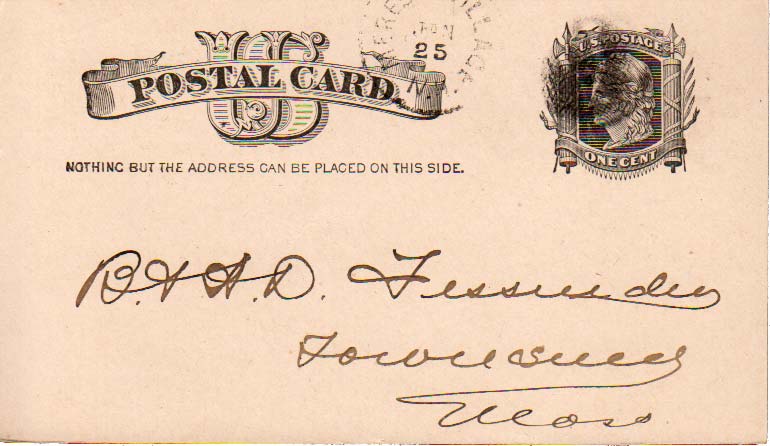 US
POSTAL CARD
NOTHING BUT THE ADDRESS CAN BE PLACED ON THIS SIDE.
VILLAGE
JAN
25
U.S. POSTAGE
ONE CENT
B. & A. D. Fessenden
Townsend
Mass